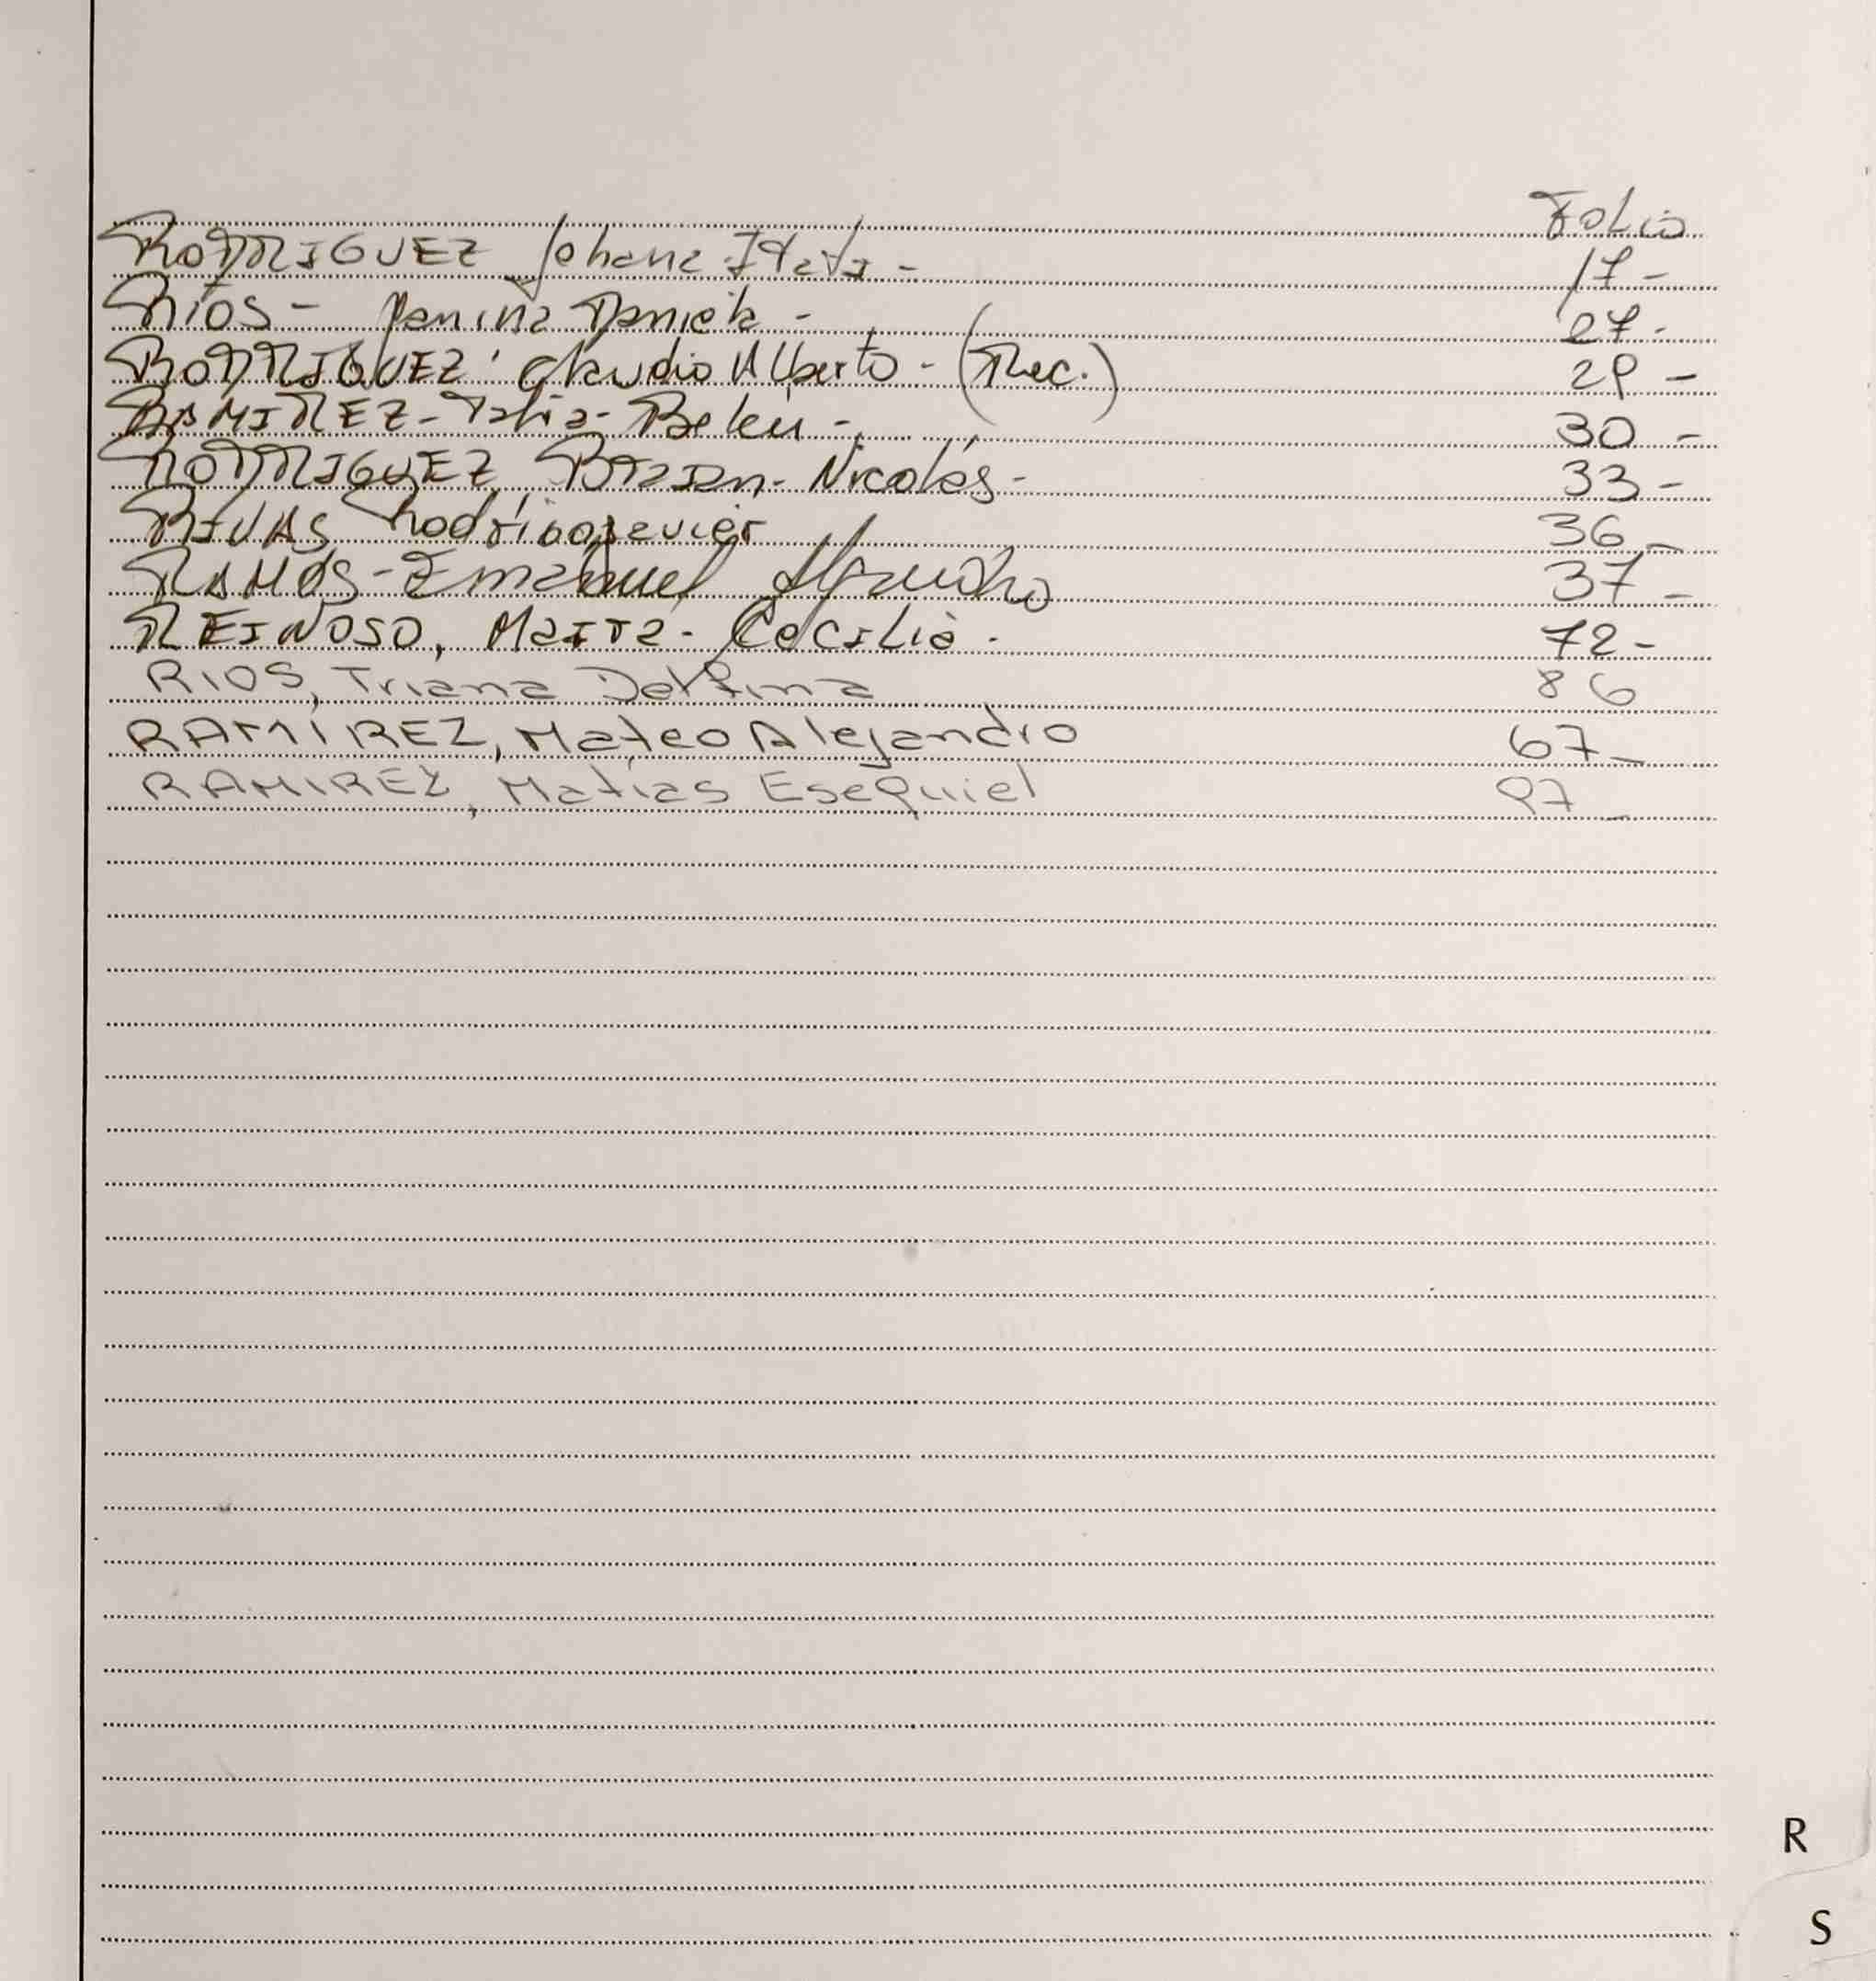 Folio
RODRIGUEZ Johana Itatí - 17 -
Ríos - Yanina Daniela - 27 -
RODRIGUEZ Claudio Alberto - (Rec.) 29 -
RAMIREZ - Talia - Belén - 30 -
RODRIGUEZ Braian - Nicolás - 33 -
RIVAS Rodrigo Javier 36 -
RAMOS - Emanuel 37 -
REINOSO, Maira - Cecilia - 72 -
RIOS, Triana Delfina 86
RAMÍREZ, Mateo Alejandro 67 -
RAMIREZ, Matías Esequiel 97 -
R
S